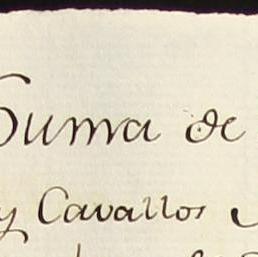 Suma de
y Cavallos